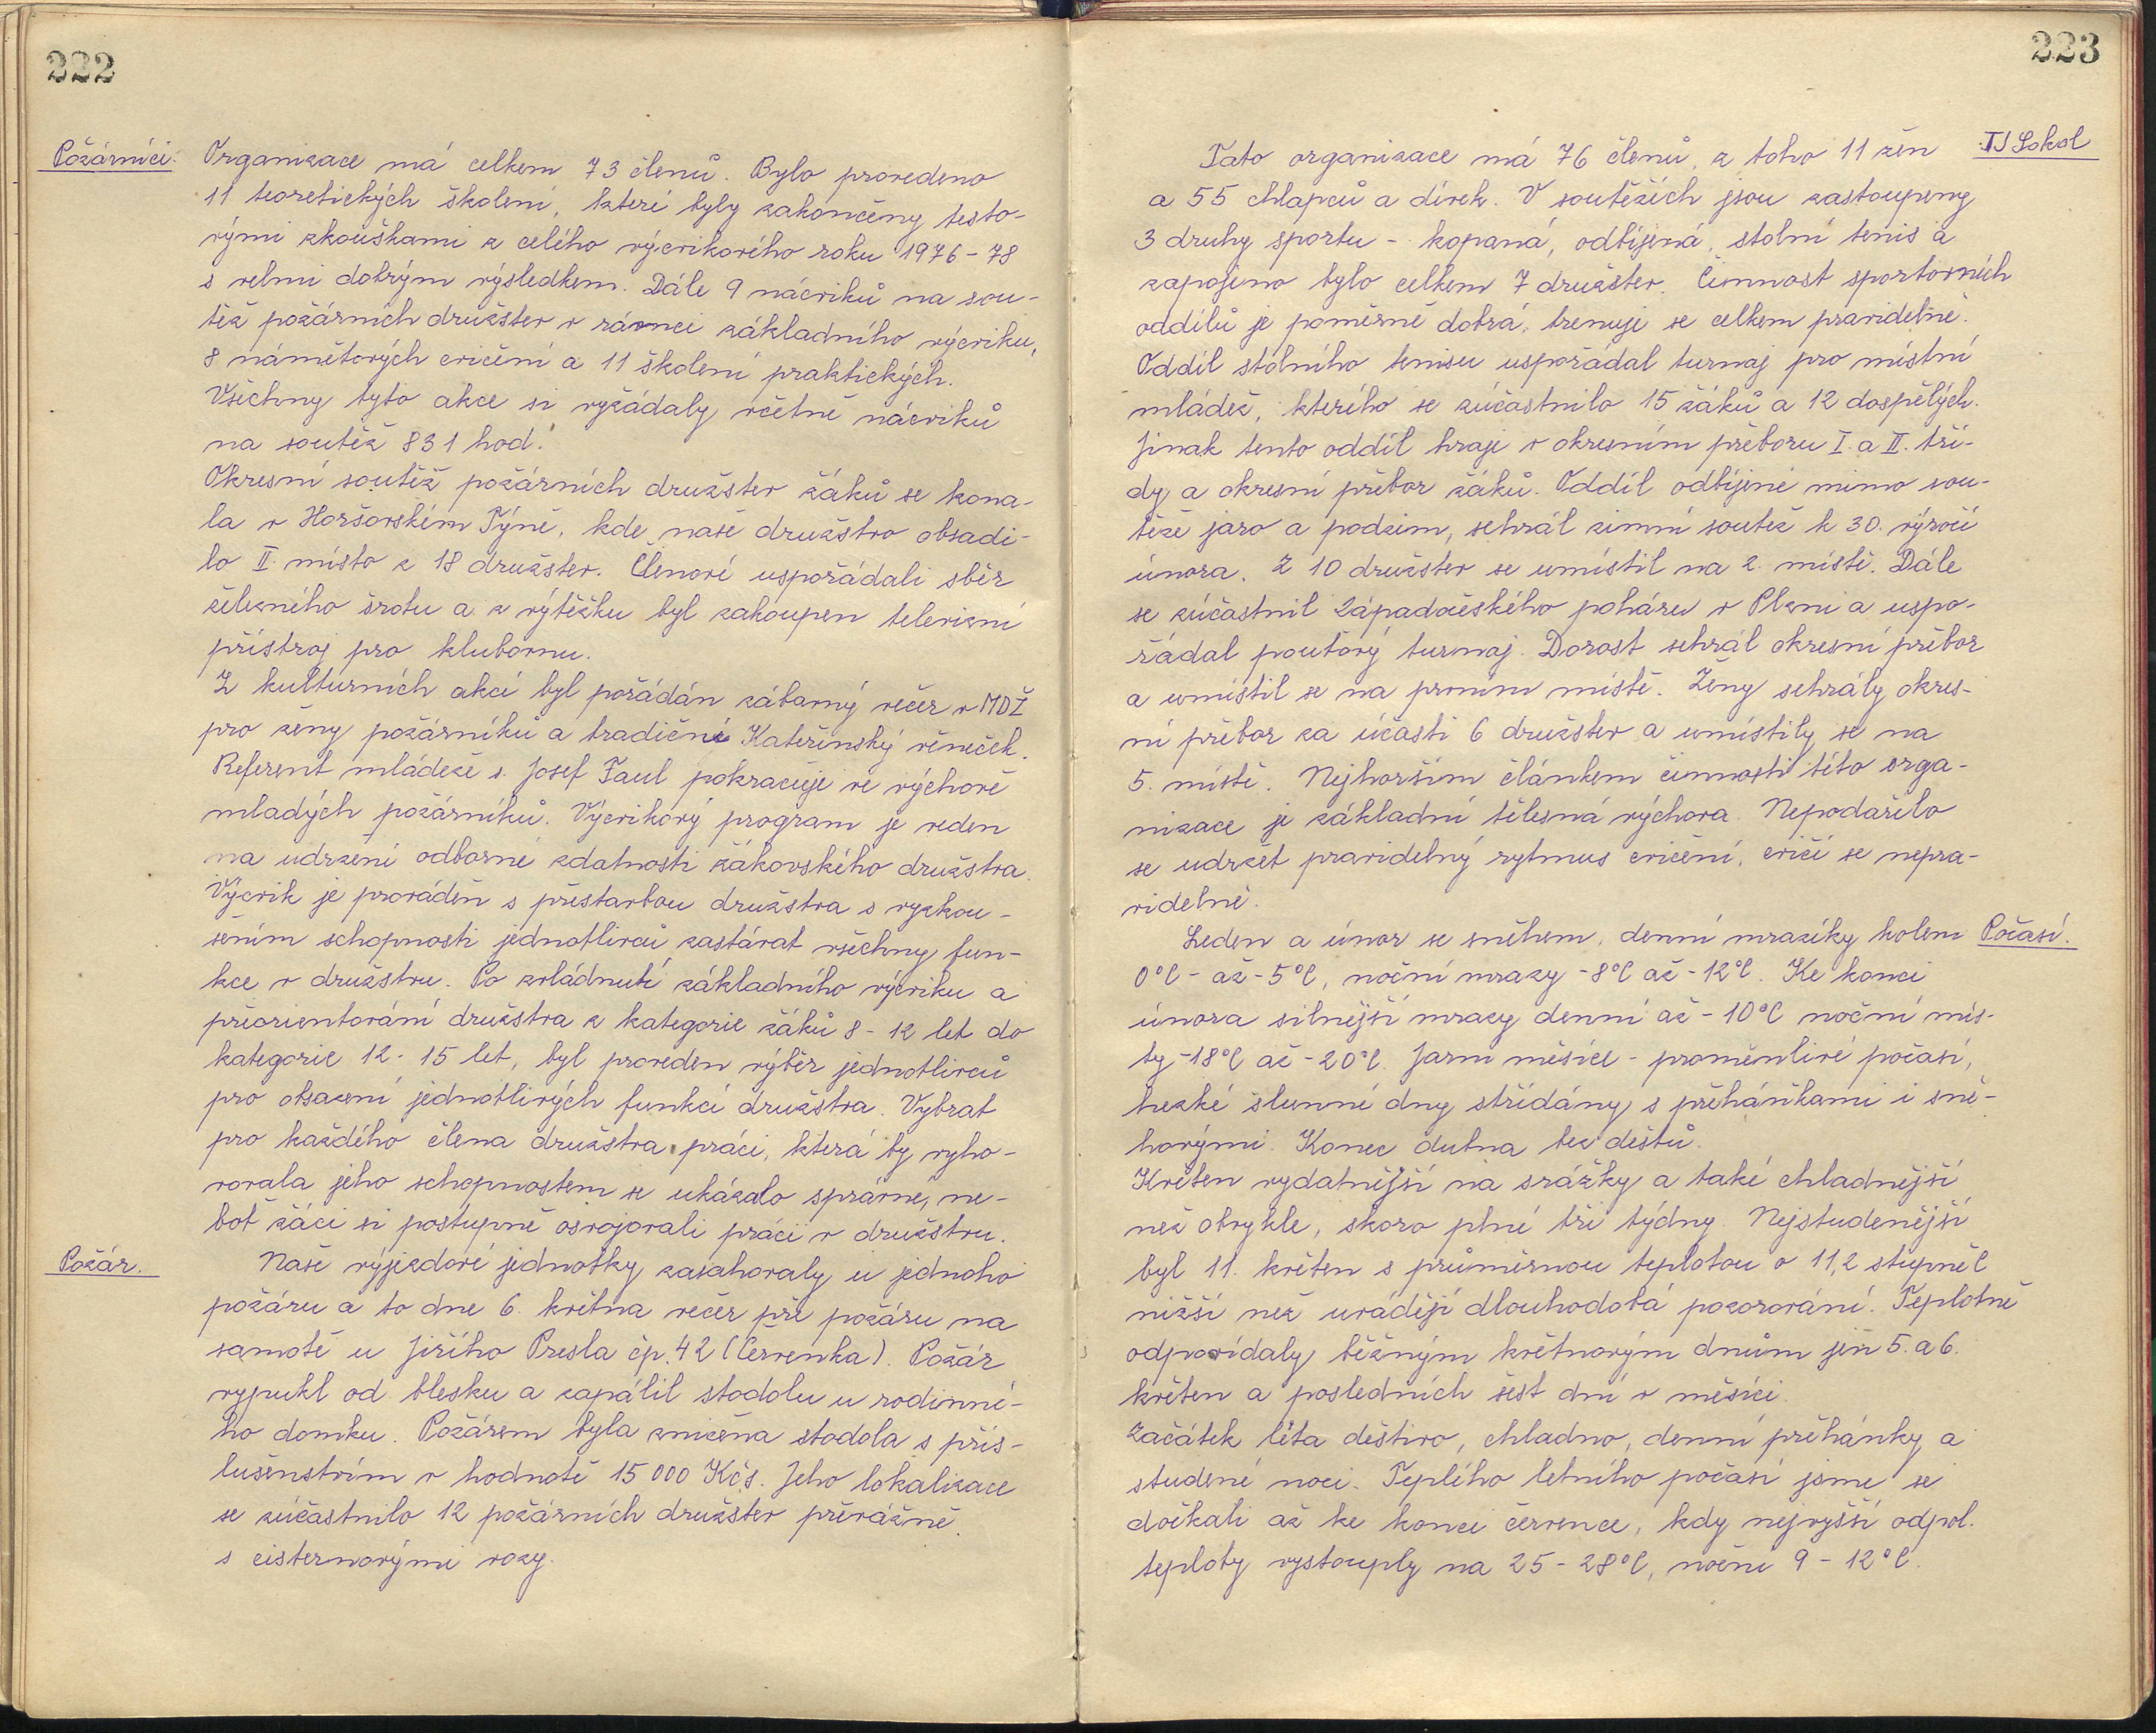 222
Požárníci.
Organizace má celkem 73 členů. Bylo provedeno
11 teoretických školení, které byly zakončeny testo-
vými zkouškami z celého výcvikového roku 1976-78
s velmi dobrým výsledkem. Dále 9 nácviků na sou-
těž požárních družstev v rámci základního výcviku,
8 námětových cvičení a 11 školení praktických.
Všechny tyto akce si vyžádaly včetně nácviků
na soutěž 831 hod.
Okresní soutěž požárních družstev žáků se kona-
la v Horšovském Týně, kde naše družstvo obsadi-
lo II. místo z 18 družstev. Členové uspořádali sběr
železného šrotu a z výtěžku byl zakoupen televizní
přístroj pro klubovnu.
Z kulturních akcí byl pořádán zábavný večer v MDŽ
pro ženy požárníků a tradiční Kateřinský věneček.
Referent mládeže s. Josef Faul pokračuje ve výchově
mladých požárníků. Výcvikový program je veden
na udržení odborné zdatnosti žákovského družstva.
Výcvik je prováděn s přestavbou družstva s vyzkou-
šením schopnosti jednotlivců zastávat všechny fun-
kce v družstvu. Po zvládnutí základního výcviku a
přeorientování družstva z kategorie žáků 8-12 let do
kategorie 12-15 let, byl proveden výběr jednotlivců
pro obsazení jednotlivých funkcí družstva. Vybrat
pro každého člena družstva práci, která by vyho-
vovala jeho schopnostem se ukázalo správné, ne-
boť žáci si postupně osvojovali práci v družstvu.
Požár.
Naše výjezdové jednotky zasahovaly u jednoho
požáru a to dne 6. května večer při požáru na
samotě u Jiřího Presla čp. 42 (Červenka). Požár
vypukl od blesku a zapálil stodolu u rodinné-
ho domku. Požárem byla zničena stodola s přís-
lušenstvím v hodnotě 15 000 Kčs. Jeho lokalizace
se zúčastnilo 12 požárních družstev převážně
s cisternovými vozy.
223
TJ Sokol
Tato organizace má 76 členů, z toho 11 žen
a 55 chlapců a dívek. V soutěžích jsou zastoupeny
3 druhy sportu - kopaná, odbíjená, stolní tenis a
zapojeno bylo celkem 7 družstev. Činnost sportovních
oddílů je poměrně dobrá, trenuje se celkem pravidelně.
Oddíl stolního tenisu uspořádal turnaj pro místní
mládež, kterého se zúčastnilo 15 žáků a 12 dospělých.
Jinak tento oddíl hraje v okresním přeboru I. a II. tří-
dy a okresní přebor žáků. Oddíl odbíjené mimo sou-
těže jaro a podzim, sehrál zimní soutěž k 30. výročí
února. Z 10 družstev se umístil na 2. místě. Dále
se zúčastnil Západočeského poháru v Plzni a uspo-
řádal pouťový turnaj. Dorost sehrál okresní přebor
a umístil se na prvním místě. Ženy sehrály okres-
ní přebor za účasti 6 družstev a umístily se na
5. místě. Nejhorším článkem činnosti této orga-
nizace je základní tělesná výchova. Nepodařilo
se udržet pravidelný rytmus cvičení, cvičí se nepra-
videlně.
Počasí.
Leden a únor se sněhem, denní mrazíky kolem
0°C - až -5°C, noční mrazy -8°C až -12°C. Ke konci
února silnější mrazy denní až -10°C noční mís-
ty -18°C až -20°C. Jarní měsíce - proměnlivé počasí,
hezké slunné dny střídány s přeháňkami i sně-
hovými. Konec dubna bez dešťů.
Květen vydatnější na srážky a také chladnější
než obvykle, skoro plné tři týdny. Nejstudenější
byl 11. květen s průměrnou teplotou o 11,2 stupně C
nižší než uvádějí dlouhodobá pozorování. Teplotně
odpovídaly běžným květnovým dnům jen 5. a 6.
květen a posledních šest dní v měsíci.
Začátek léta deštivo, chladno, denní přeháňky a
studené noci. Teplého letního počasí jsme se
dočkali až ke konci července, kdy nejvyšší odpol.
teploty vystouply na 25-28°C, noční 9-12°C.